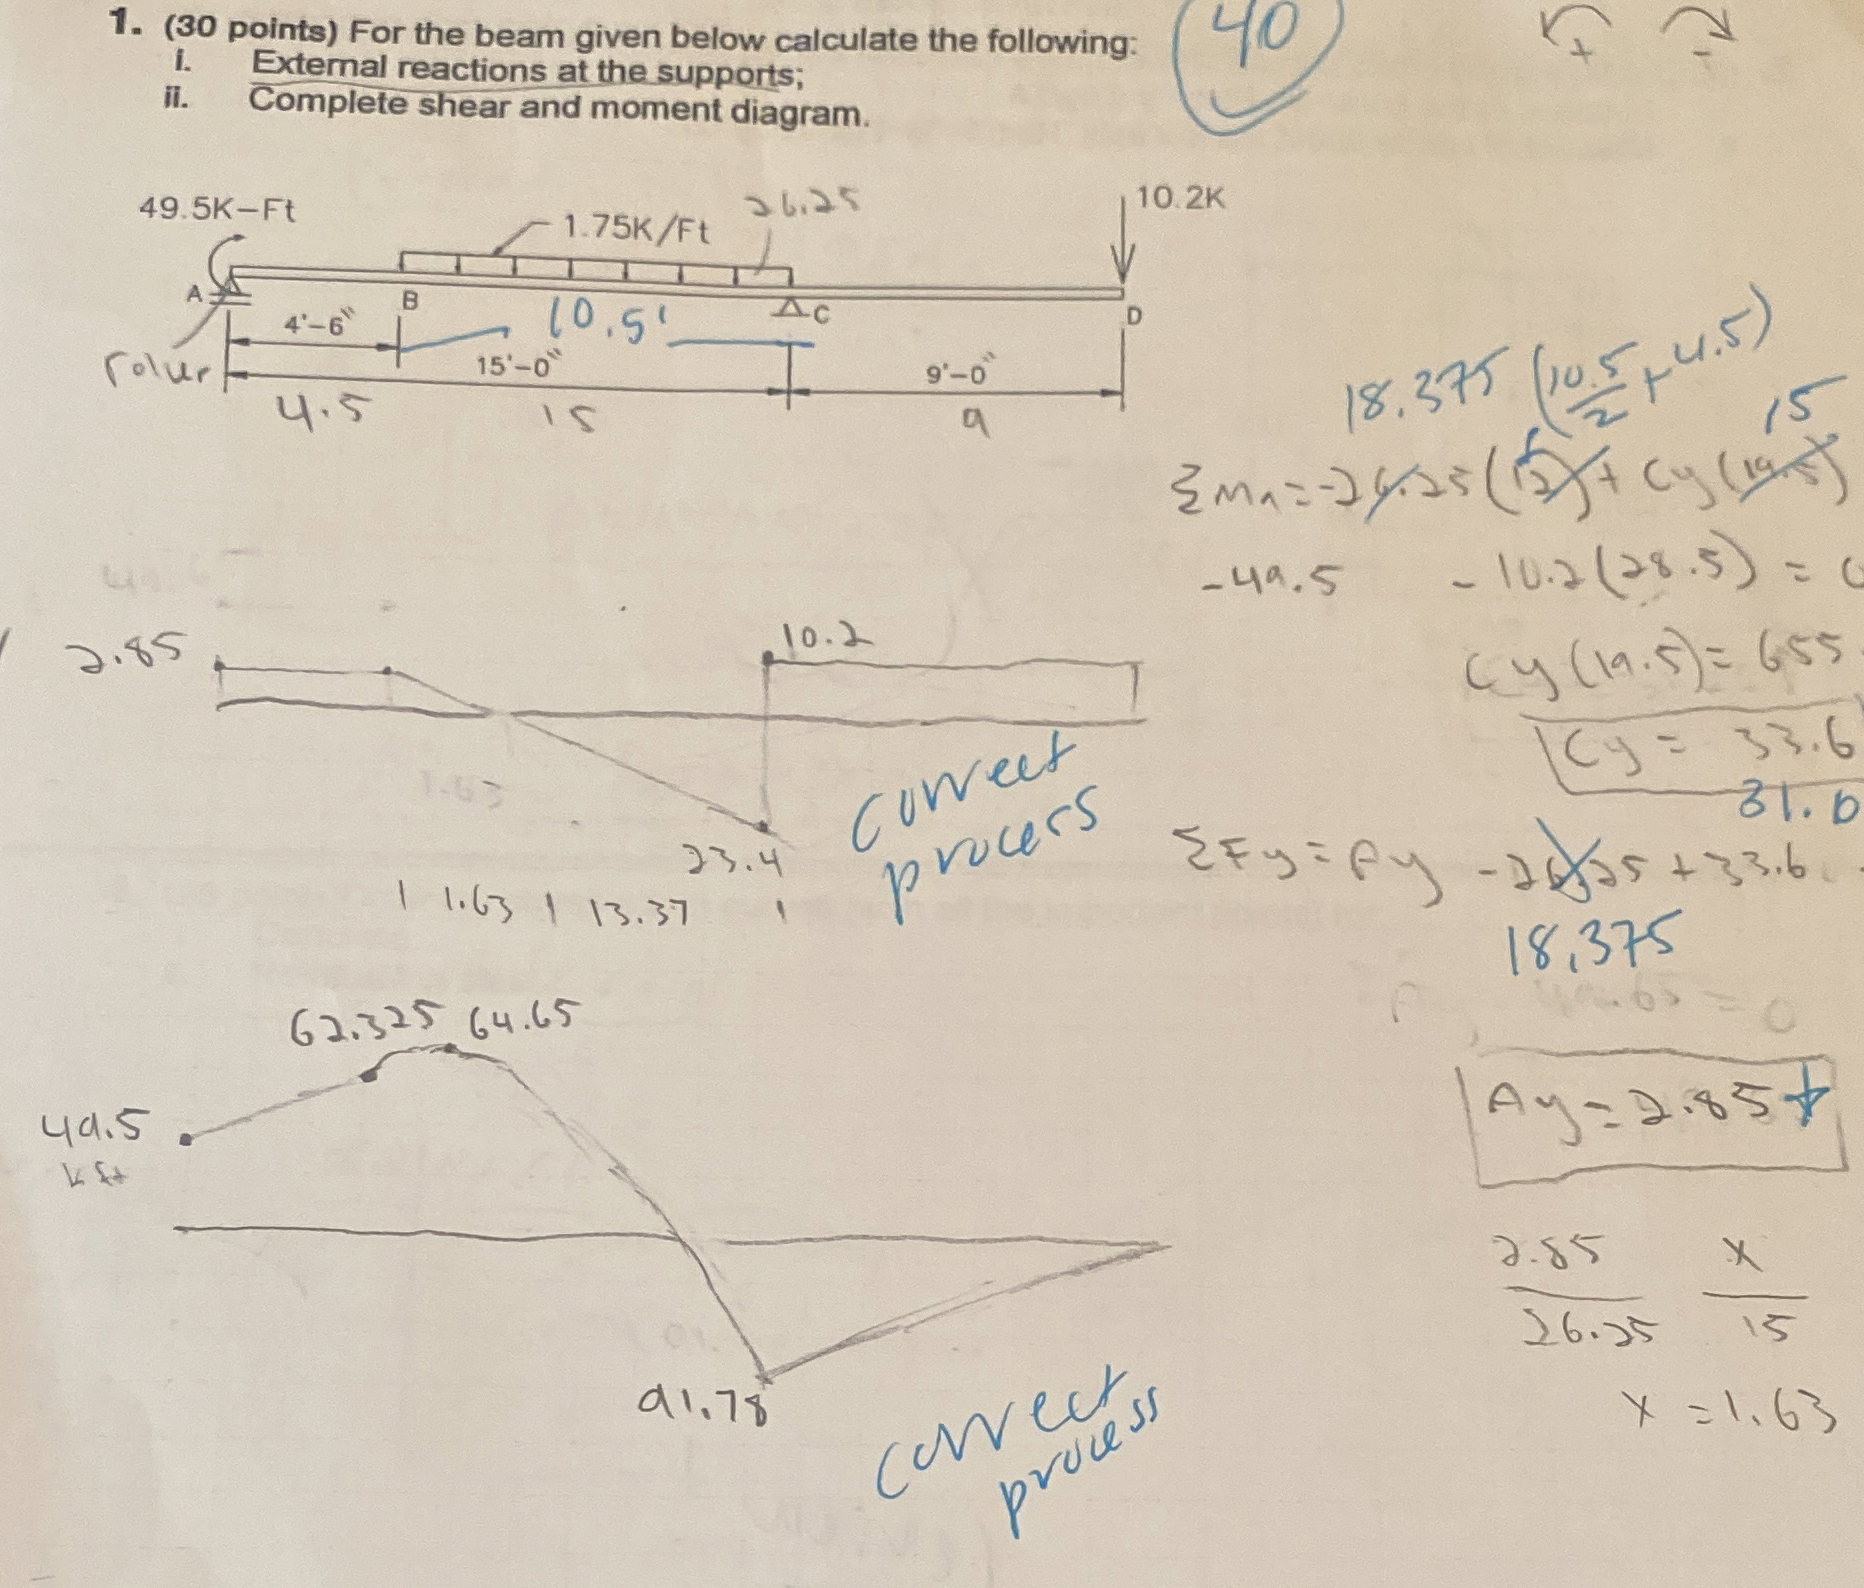 1. (30 points) For the beam given below calculate the following:
i. External reactions at the supports;
ii. Complete shear and moment diagram.
40
+ -
49.5K-Ft
1.75K/Ft
26.25
10.2K
A
B
C
D
4'-6"
10.5'
15'-0"
9'-0"
4.5
15
9
18.375 (10.5/2 + 4.5)
15
ΣMA = -26.25 (12) + Cy (19.5)
-49.5 - 10.2 (28.5) =
Cy (19.5) = 655
Cy = 33.6
31.0
ΣFy = Ay - 26.25 + 33.6
18.375
= 0
Ay = 2.85
2.85/26.25 x/15
x = 1.63
2.85
10.2
1.63
23.4
1.63 13.37
correct
process
62.325 64.65
49.5
k ft
91.78
correct
process